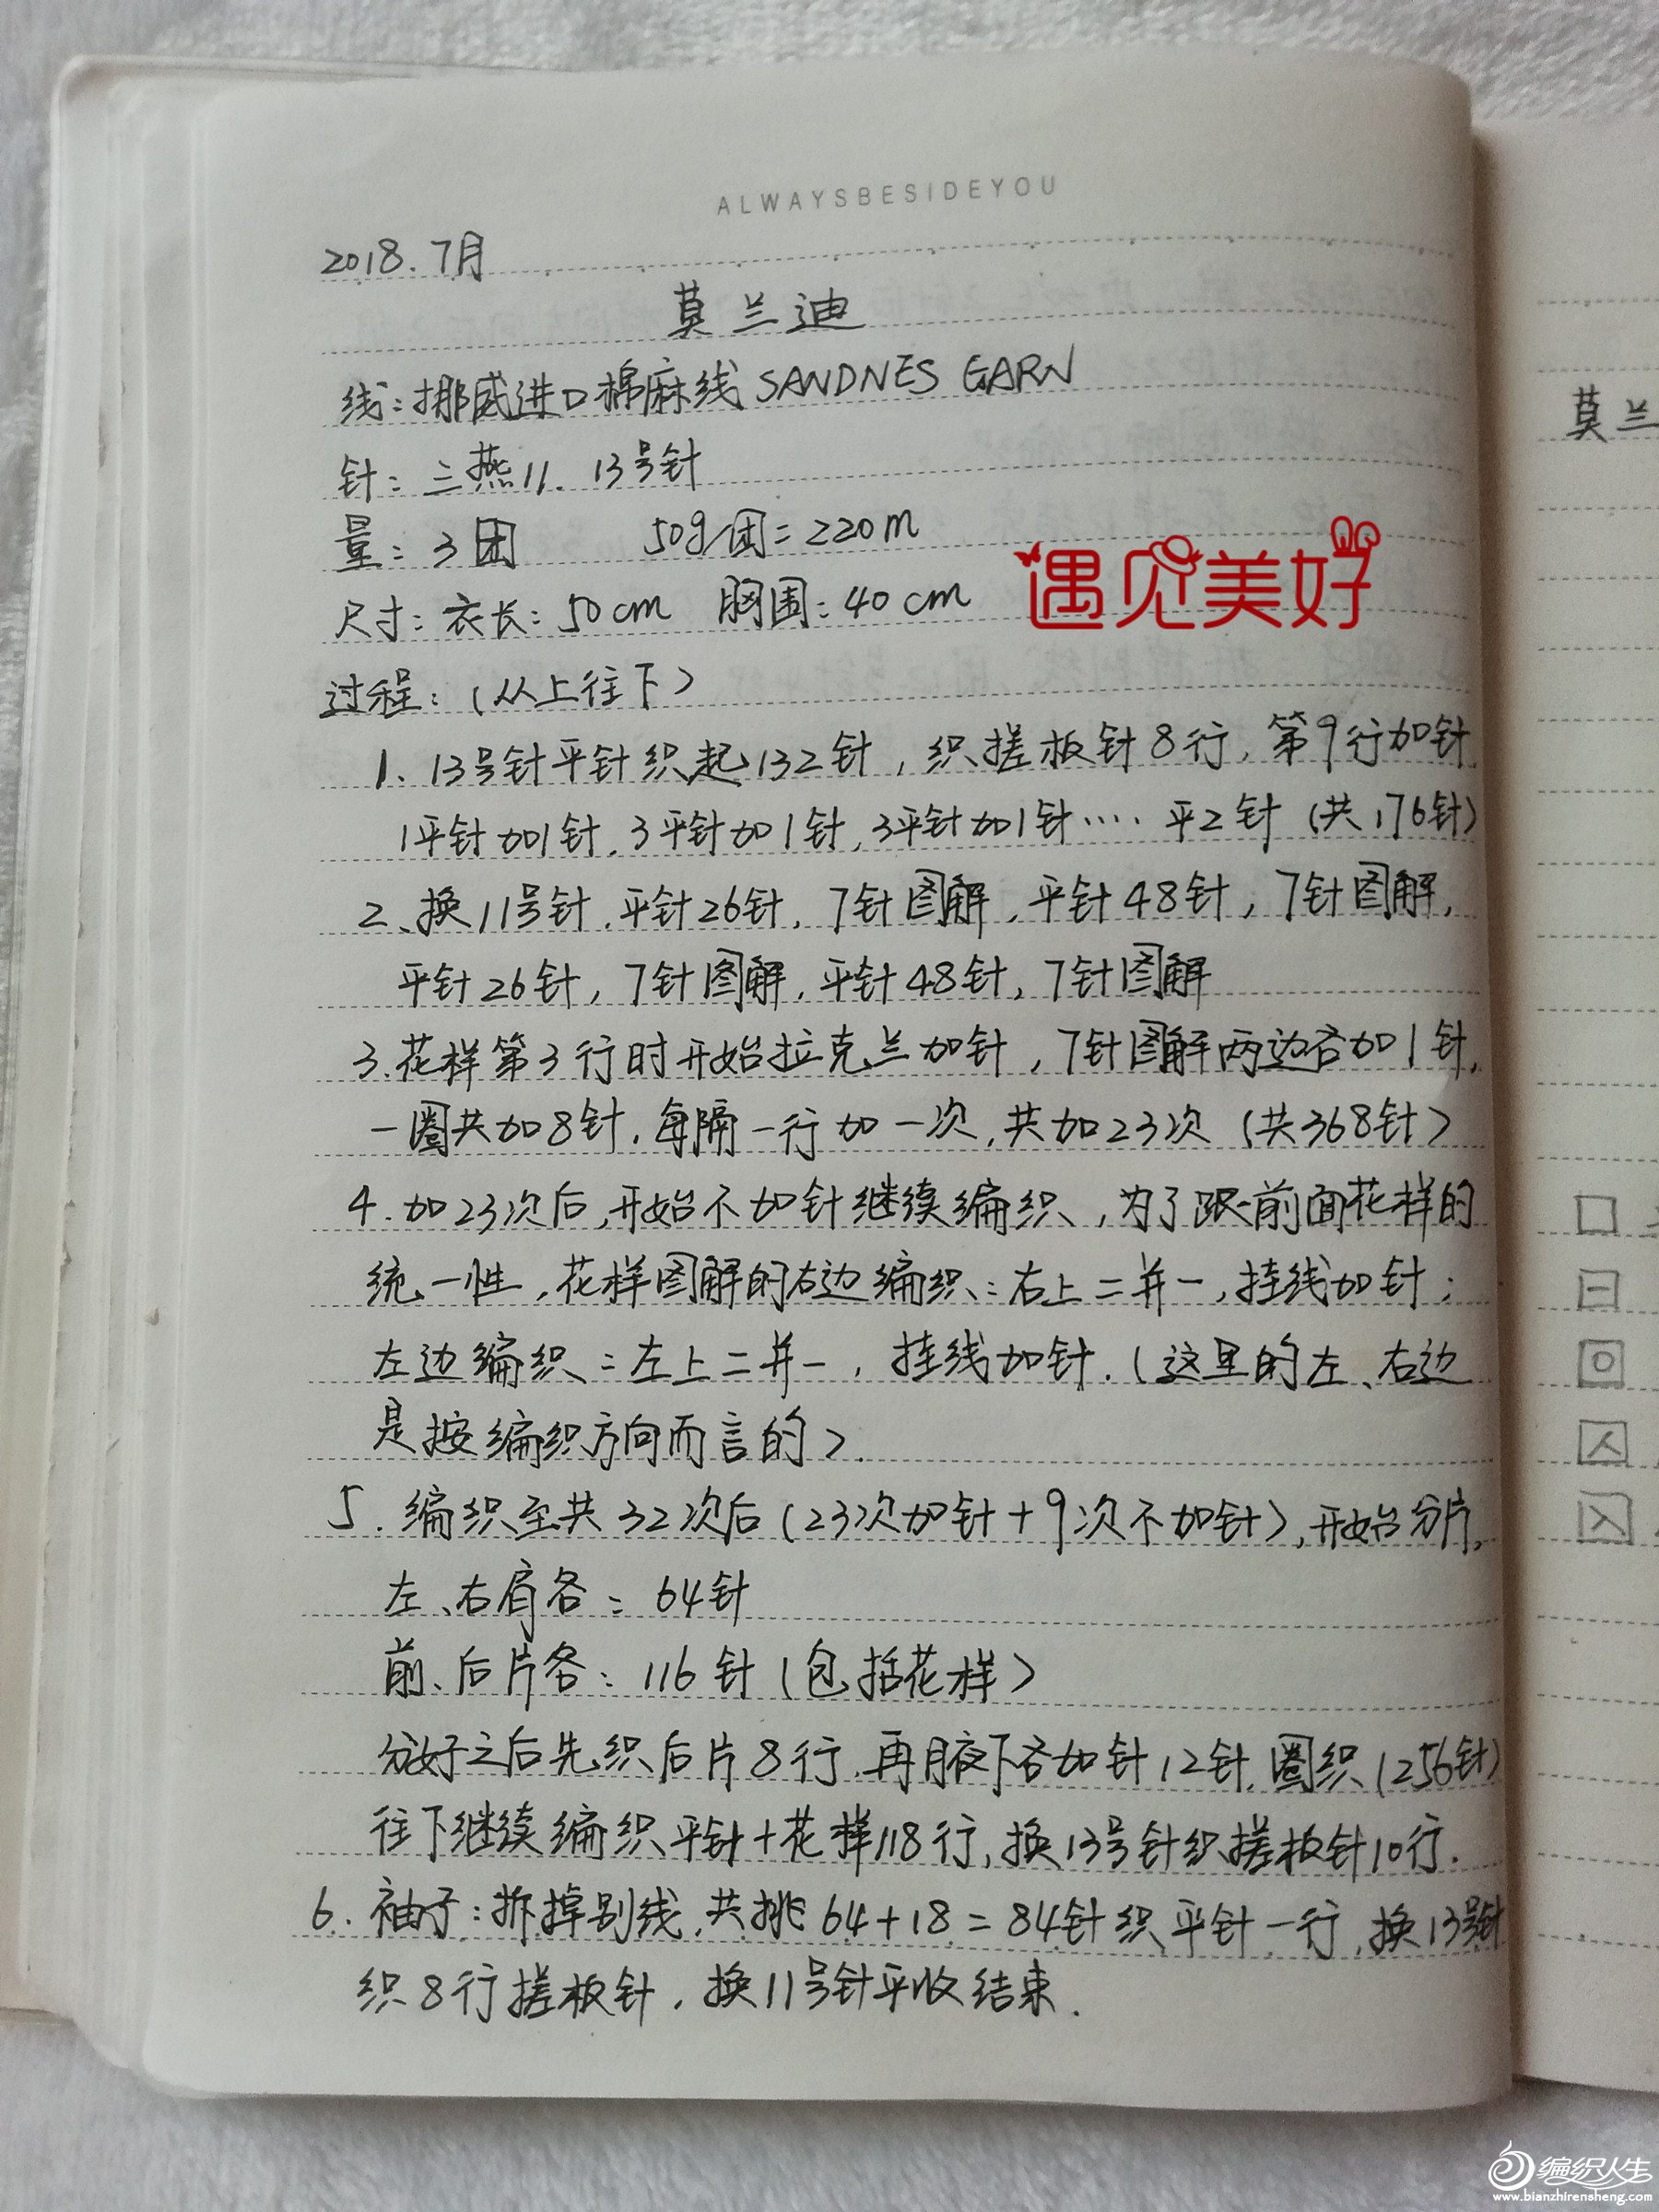 ALWAYSBESIDEYOU
2018.7月
莫兰迪
线:挪威进口棉麻线SANDNES GARN
针:三燕11.13号针
量:3团 50g/团=220m
遇见美好
尺寸:衣长:50cm 胸围:40cm
过程:(从上往下)
1、13号针平针织起132针,织搓板针8行,第9行加针,
1平针加1针,3平针加1针,3平针加1针····平2针(共176针)
2、换11号针,平针26针,7针图解,平针48针,7针图解,
平针26针,7针图解,平针48针,7针图解
3.花样第3行时开始拉克兰加针,7针图解两边各加1针,
一圈共加8针,每隔一行加一次,共加23次(共368针)
4.加23次后,开始不加针继续编织,为了跟前面花样的
统一性,花样图解的右边编织:右上二并一,挂线加针;
左边编织:左上二并一,挂线加针.(这里的左、右边
是按编织方向而言的).
5.编织至共32次后(23次加针+9次不加针),开始分片,
左、右肩各:64针
前、后片各:116针(包括花样)
分好之后先织后片8行,再腋下各加针12针,圈织(256针)
往下继续编织平针+花样118行,换13号针织搓板针10行.
6.袖子:拆掉别线,共挑64+18=84针织平针一行,换13号针
织8行搓板针,换11号针平收结束.
莫兰
编织人生
www.bianzhirensheng.com